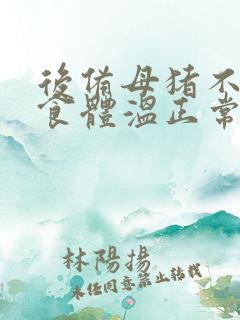 後備母猪不
食體溫正常
林陽揚
未经同意禁止转载